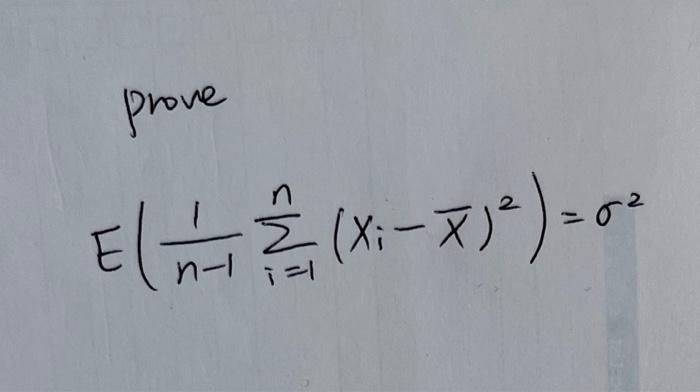 prove
E(\frac{1}{n-1} \sum_{i=1}^{n} (X_i - \overline{X})^2) = σ^2